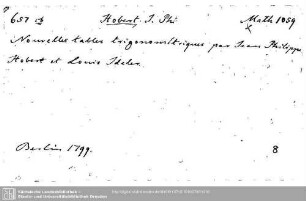 657 Hobert, J. Phi Math 1059
Nouvelles tables trigonométriques par Jean Philippe
Hobert et Louis Ideler.
Berlin 1799. 8
Sächsische Landesbibliothek -
Staats- und Universitätsbibliothek Dresden